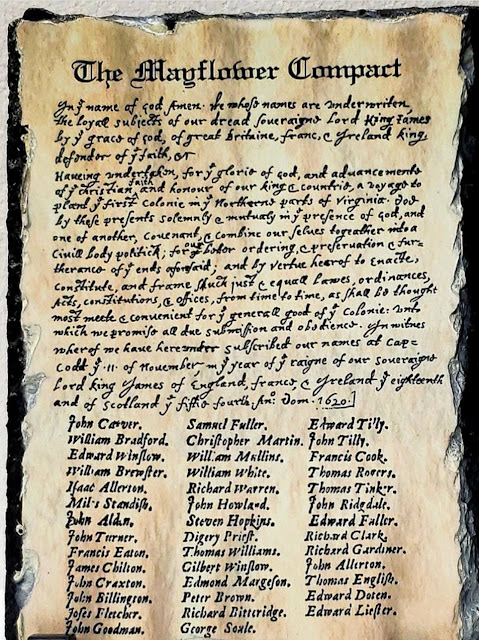 The Mayflower Compact
In yͤ name of God Amen. We whose names are underwriten,
the loyall subjects of our dread soveraigne Lord King James
by yͤ grace of God, of great Britaine, franc, & Ireland king,
defender of yͤ faith, &c
Haveing undertaken, for yͤ glorie of God, and advancemente
of yͤ christian faith and honour of our king & countrie, a voyage to
plant yͤ first Colonie in yͤ Northerne parts of Virginia. Doe
by these presents solemnly & mutualy in yͤ presence of God, and
one of another, Covenant, & combine our selves togeather into a
Civill body politick; for our better ordering, & preservation & fur=
therance of yͤ ends aforsaid; and by vertue hearof to Enacte,
constitute, and frame shuch just & equall Lawes, ordinances,
Acts, constitutions, & offices, from time to time, as shall be thought
most meete & convenient for yͤ generall good of yͤ Colonie: unto
which we promise all due submission and obedience. In witnes
wherof we have hereunder subscribed our names at Cap=
Codd yͤ .11. of November, in yͤ year of yͤ raigne of our soveraigne
Lord king James of England, france, & Ireland yͤ eighteenth
and of Scotland yͤ fiftie fourth. Anͦ: Dom. 1620.
John Carver. Samuel Fuller. Edward Tilly.
William Bradford. Christopher Martin. John Tilly.
Edward Winslow. William Mullins. Francis Cook.
William Brewster. William White. Thomas Rogers.
Isaac Allerton. Richard Warren. Thomas Tinker.
Miles Standish. John Howland. John Ridgdale.
John Alden. Steven Hopkins. Edward Fuller.
John Turner. Digery Priest. Richard Clark.
Francis Eaton. Thomas Williams. Richard Gardiner.
James Chilton. Gilbert Winslow. John Allerton.
John Craxton. Edmond Margeson. Thomas English.
John Billington. Peter Brown. Edward Doten.
Joses Fletcher. Richard Bitteridge. Edward Liester.
John Goodman. George Soule.